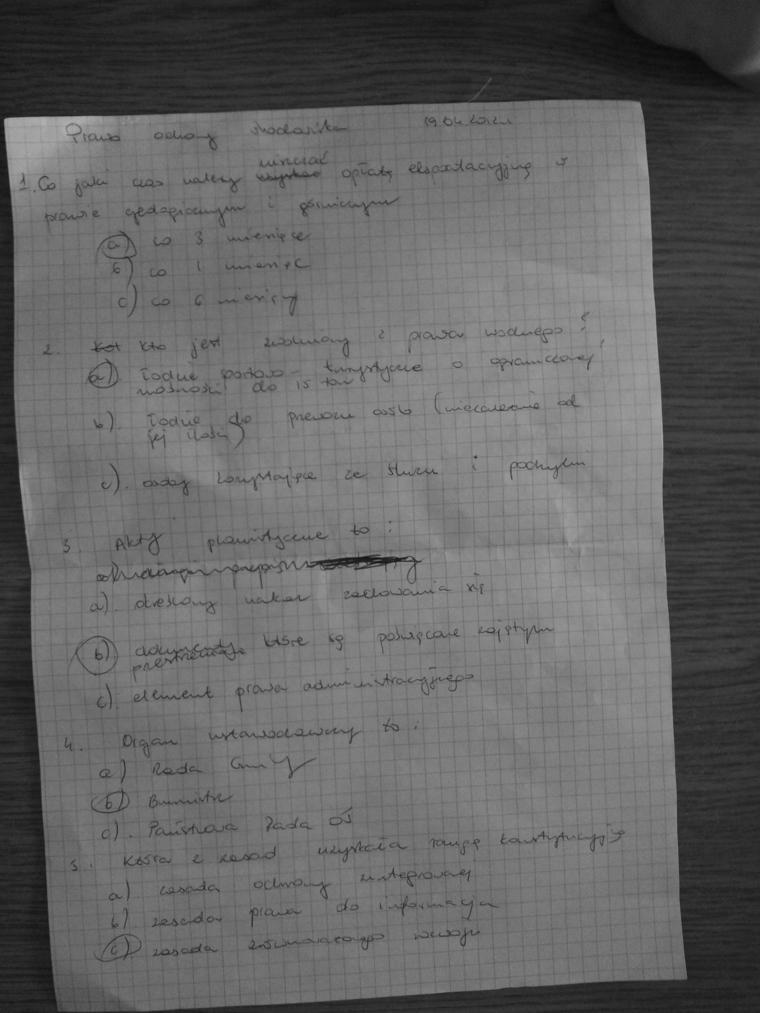 Prawo ochrony środowiska 19.04.2012r
1. Co jaki czas należy wnosić opłatę eksploatacyjną w
prawie geologicznym i górniczym
a) co 3 miesiące
b) co 1 miesiąc
c) co 6 miesięcy
2. kto jest zwolniony z prawa wodnego?
a) łodzie portowo - turystyczne o ograniczonej
nośności do 15 ton
b). łodzie do przewozu osób (niezależnie od
jej ilości)
c). osoby korzystające ze śluz i pochylni
3. Akty planistyczne to :
a). określony nakaz zachowania się
b) które są poświęcone
przestrzeni
c) element prawa administracyjnego
4. Organ ustawodawczy to :
a) Rada Gminy
b) Burmistrz
c). Państwowa Rada OŚ
5. Która z zasad uzyskała rangę konstytucyjną
a) zasada ochrony integrowanej
b) zasada prawa do informacja
c) zasada zrównoważonego rozwoju